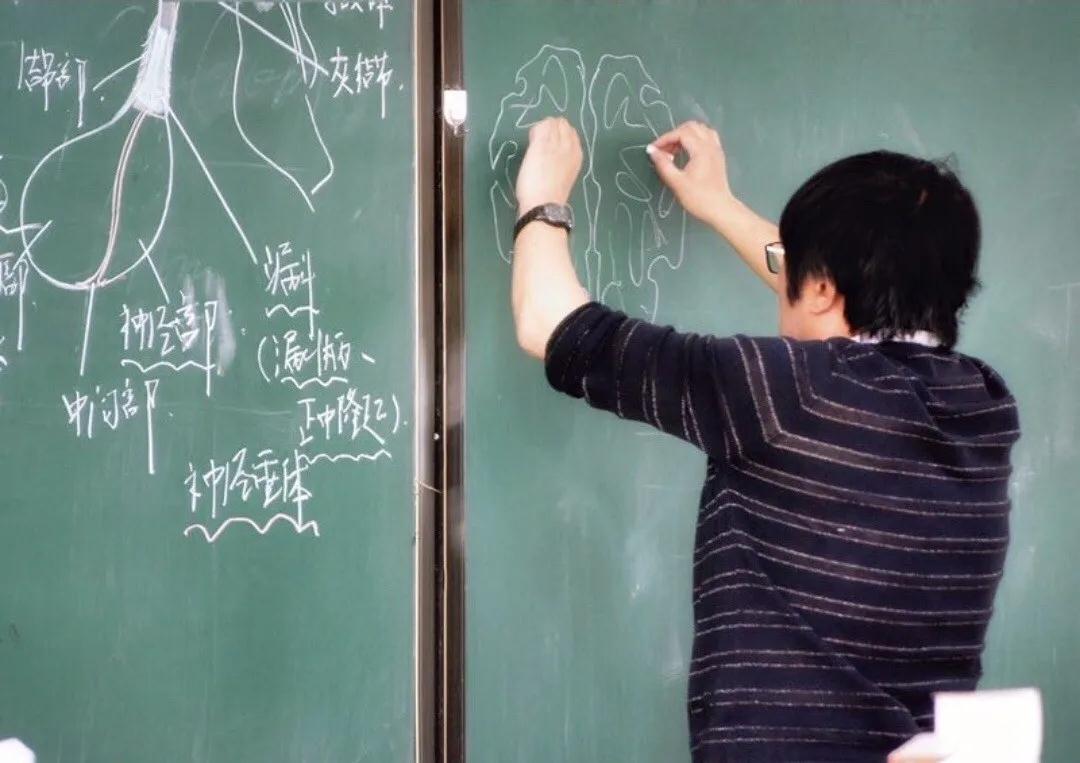 灰结节.
漏斗
神经部
(漏斗柄、
中间部.
正中隆起).
神经垂体